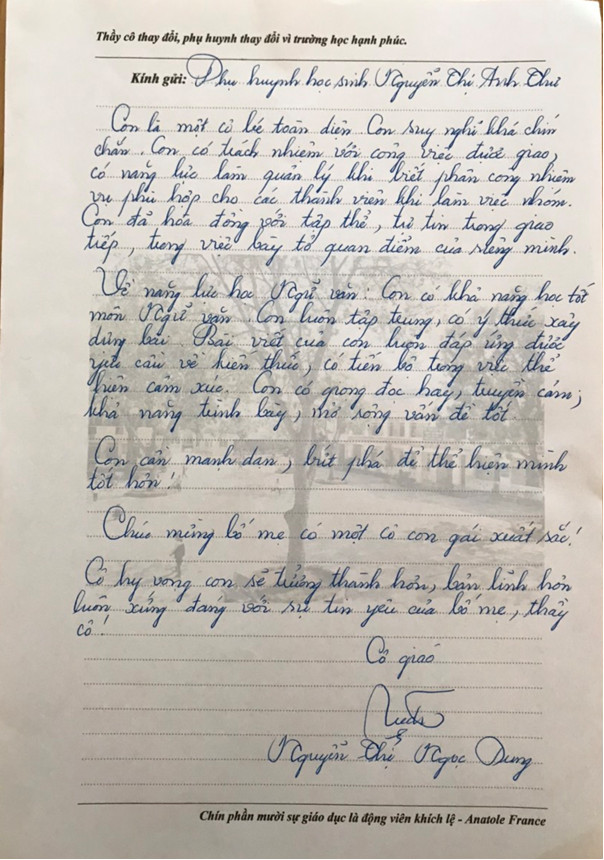 Thầy cô thay đổi, phụ huynh thay đổi vì trường học hạnh phúc.
Kính gửi: Phụ huynh học sinh Nguyễn Thị Anh Thư
Con là một cô bé toàn diện. Con suy nghĩ khá chín
chắn. Con có trách nhiệm với công việc được giao,
có năng lực làm quản lý khi biết phân công nhiệm
vụ phù hợp cho các thành viên khi làm việc nhóm.
Con đã hòa đồng với tập thể, tự tin trong giao
tiếp, trong việc bày tỏ quan điểm của riêng mình.
Về năng lực học Ngữ văn: Con có khả năng học tốt
môn Ngữ văn. Con luôn tập trung, có ý thức xây
dựng bài. Bài viết của con luôn đáp ứng được
yêu cầu về kiến thức, có tiến bộ trong việc thể
hiện cảm xúc. Con có giọng đọc hay, truyền cảm;
khả năng trình bày, mở rộng vấn đề tốt
Con cần mạnh dạn, bứt phá để thể hiện mình
tốt hơn!
Chúc mừng bố mẹ có một cô con gái xuất sắc!
Cô hy vọng con sẽ trưởng thành hơn, bản lĩnh hơn
luôn xứng đáng với sự tin yêu của bố mẹ, thầy
cô!
Cô giáo
Nguyễn Thị Ngọc Dung
Chín phần mười sự giáo dục là động viên khích lệ - Anatole France